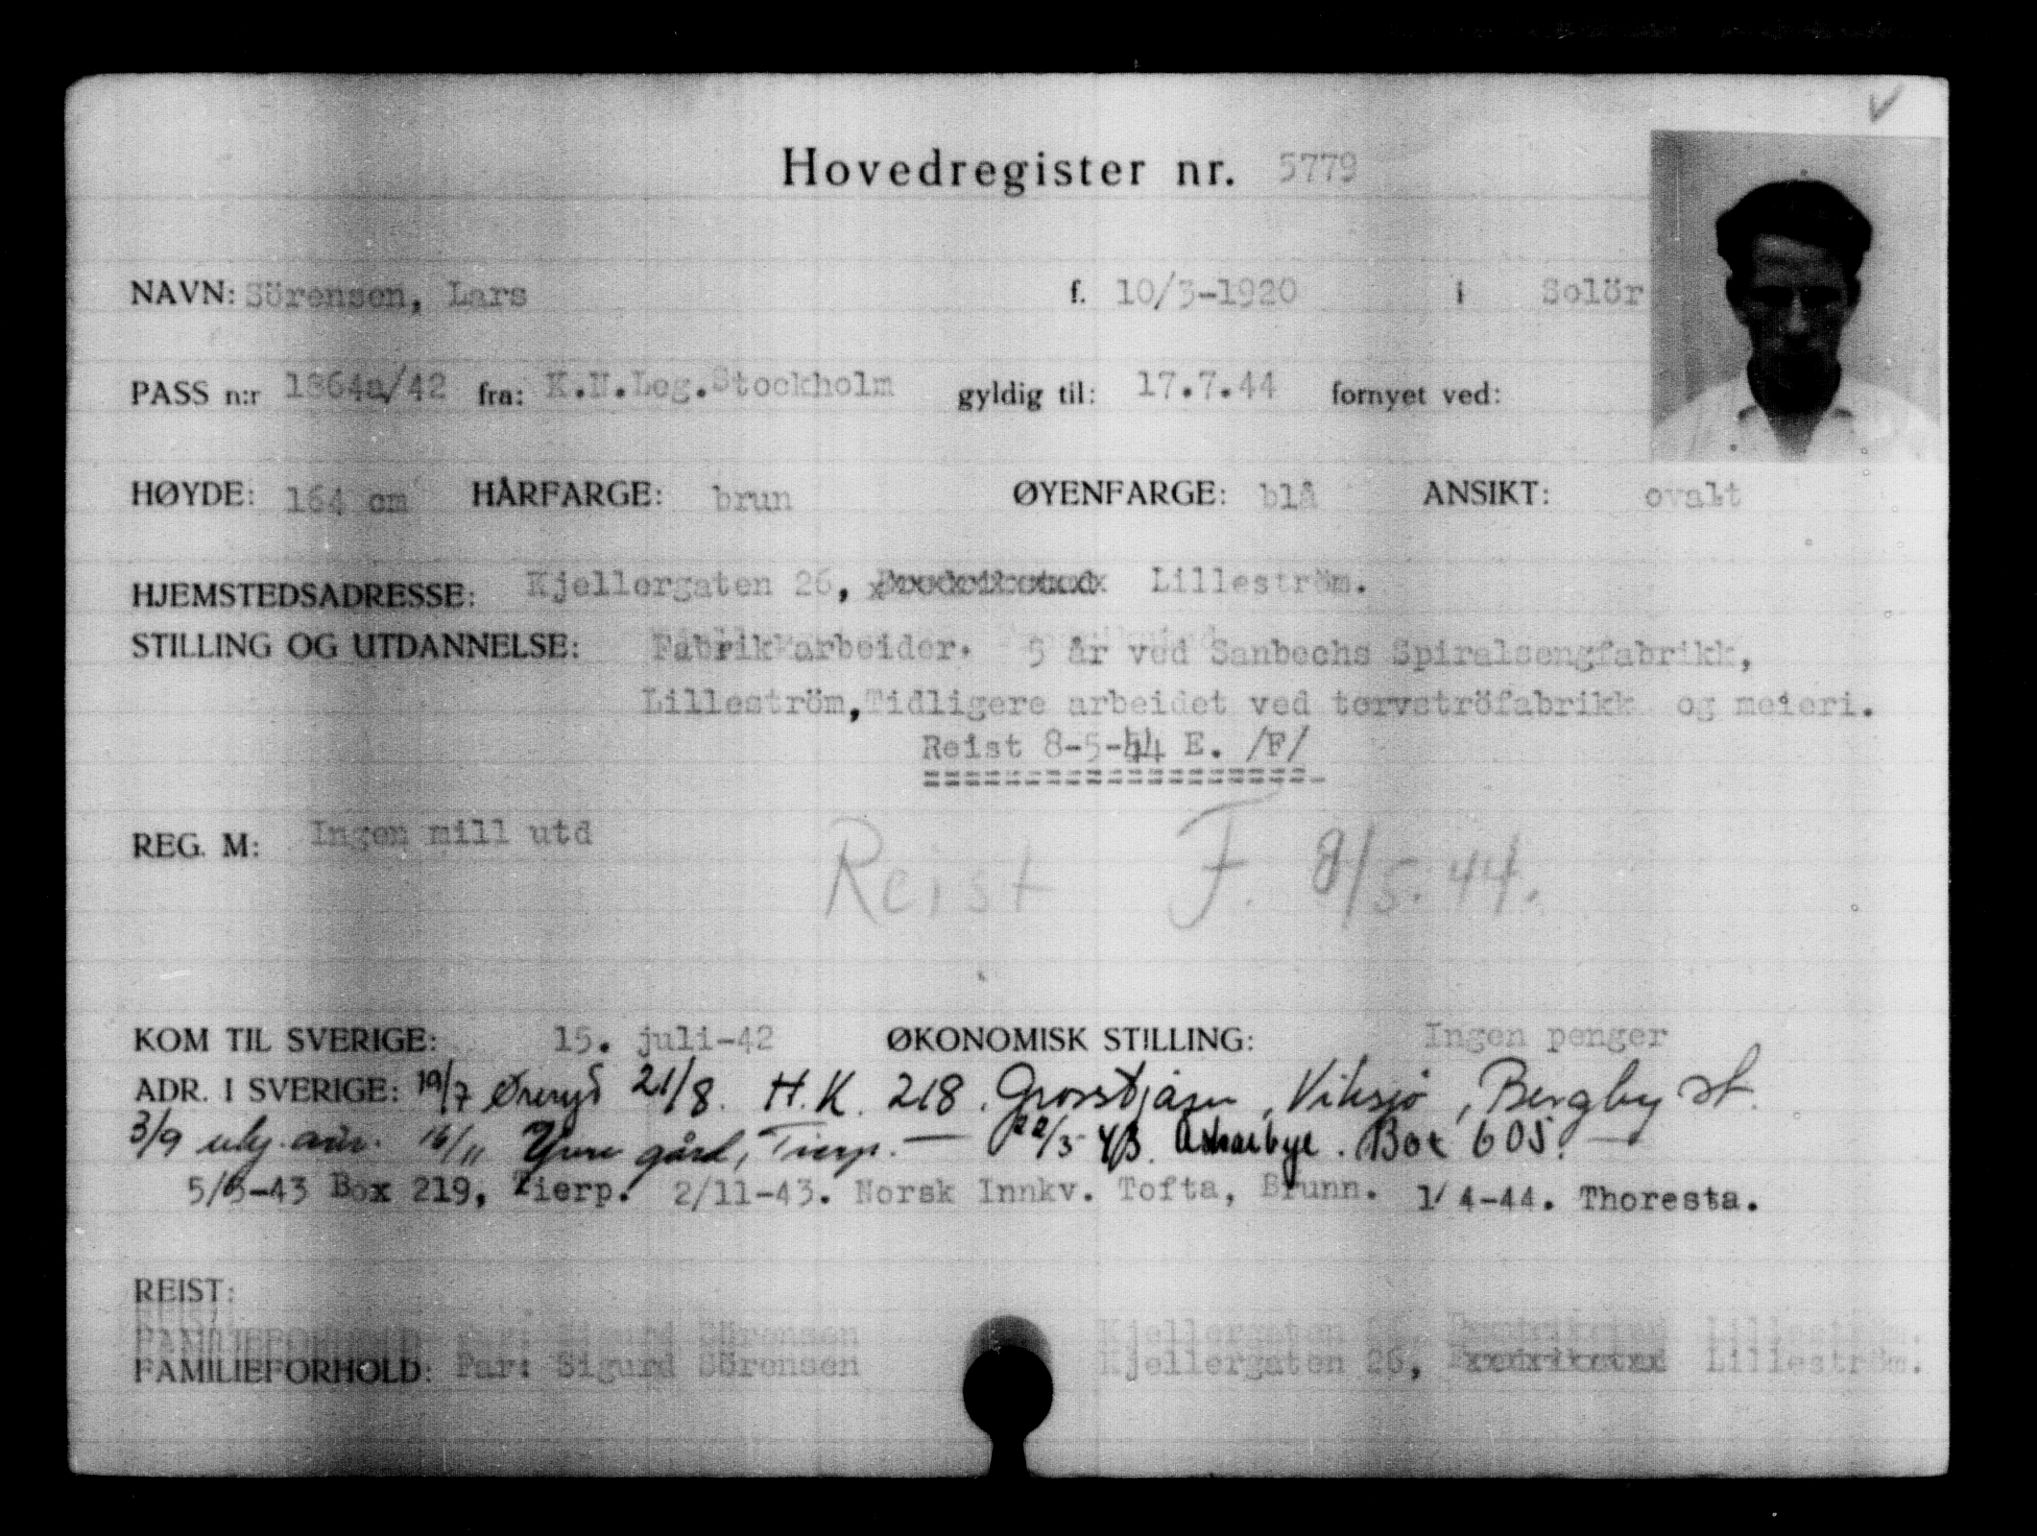 Hovedregister nr. 5779
NAVN: Sörensen, Lars f. 10/3-1920 i Solör
PASS n:r 1864a/42 fra: K.N.Leg.Stockholm gyldig til: 17.7.44 fornyet ved:
HØYDE: 164 cm HÅRFARGE: brun ØYENFARGE: blå ANSIKT: ovalt
HJEMSTEDSADRESSE: Kjellergaten 26, Fredrikstad Lilleström.
STILLING OG UTDANNELSE: Fabrikkarbeider. 5 år ved Sanbechs Spiralsengfabrikk,
Lilleström, Tidligere arbeidet ved torvströfabrikk og meieri.
Reist 8-5-44 E. /F/
REG. M: Ingen mill utd
Reist F. 8/5.44.
KOM TIL SVERIGE: 15. juli-42 ØKONOMISK STILLING: Ingen penger
ADR. I SVERIGE: 19/7 Øreryd 21/8. H.K. 218. Grosstjärn, Viksjö, Bergby st.
3/9 ukj. adr. 16/11 gård, Tierp. — 22/5 43. Box 605.
5/6-43 Box 219, Tierp. 2/11-43. Norsk Innkv. Tofta, Brunn. 1/4-44. Thoresta.
REIST:
FAMILIEFORHOLD: Far: Sigurd Sörensen Kjellergaten 26, Fredrikstad Lilleström.